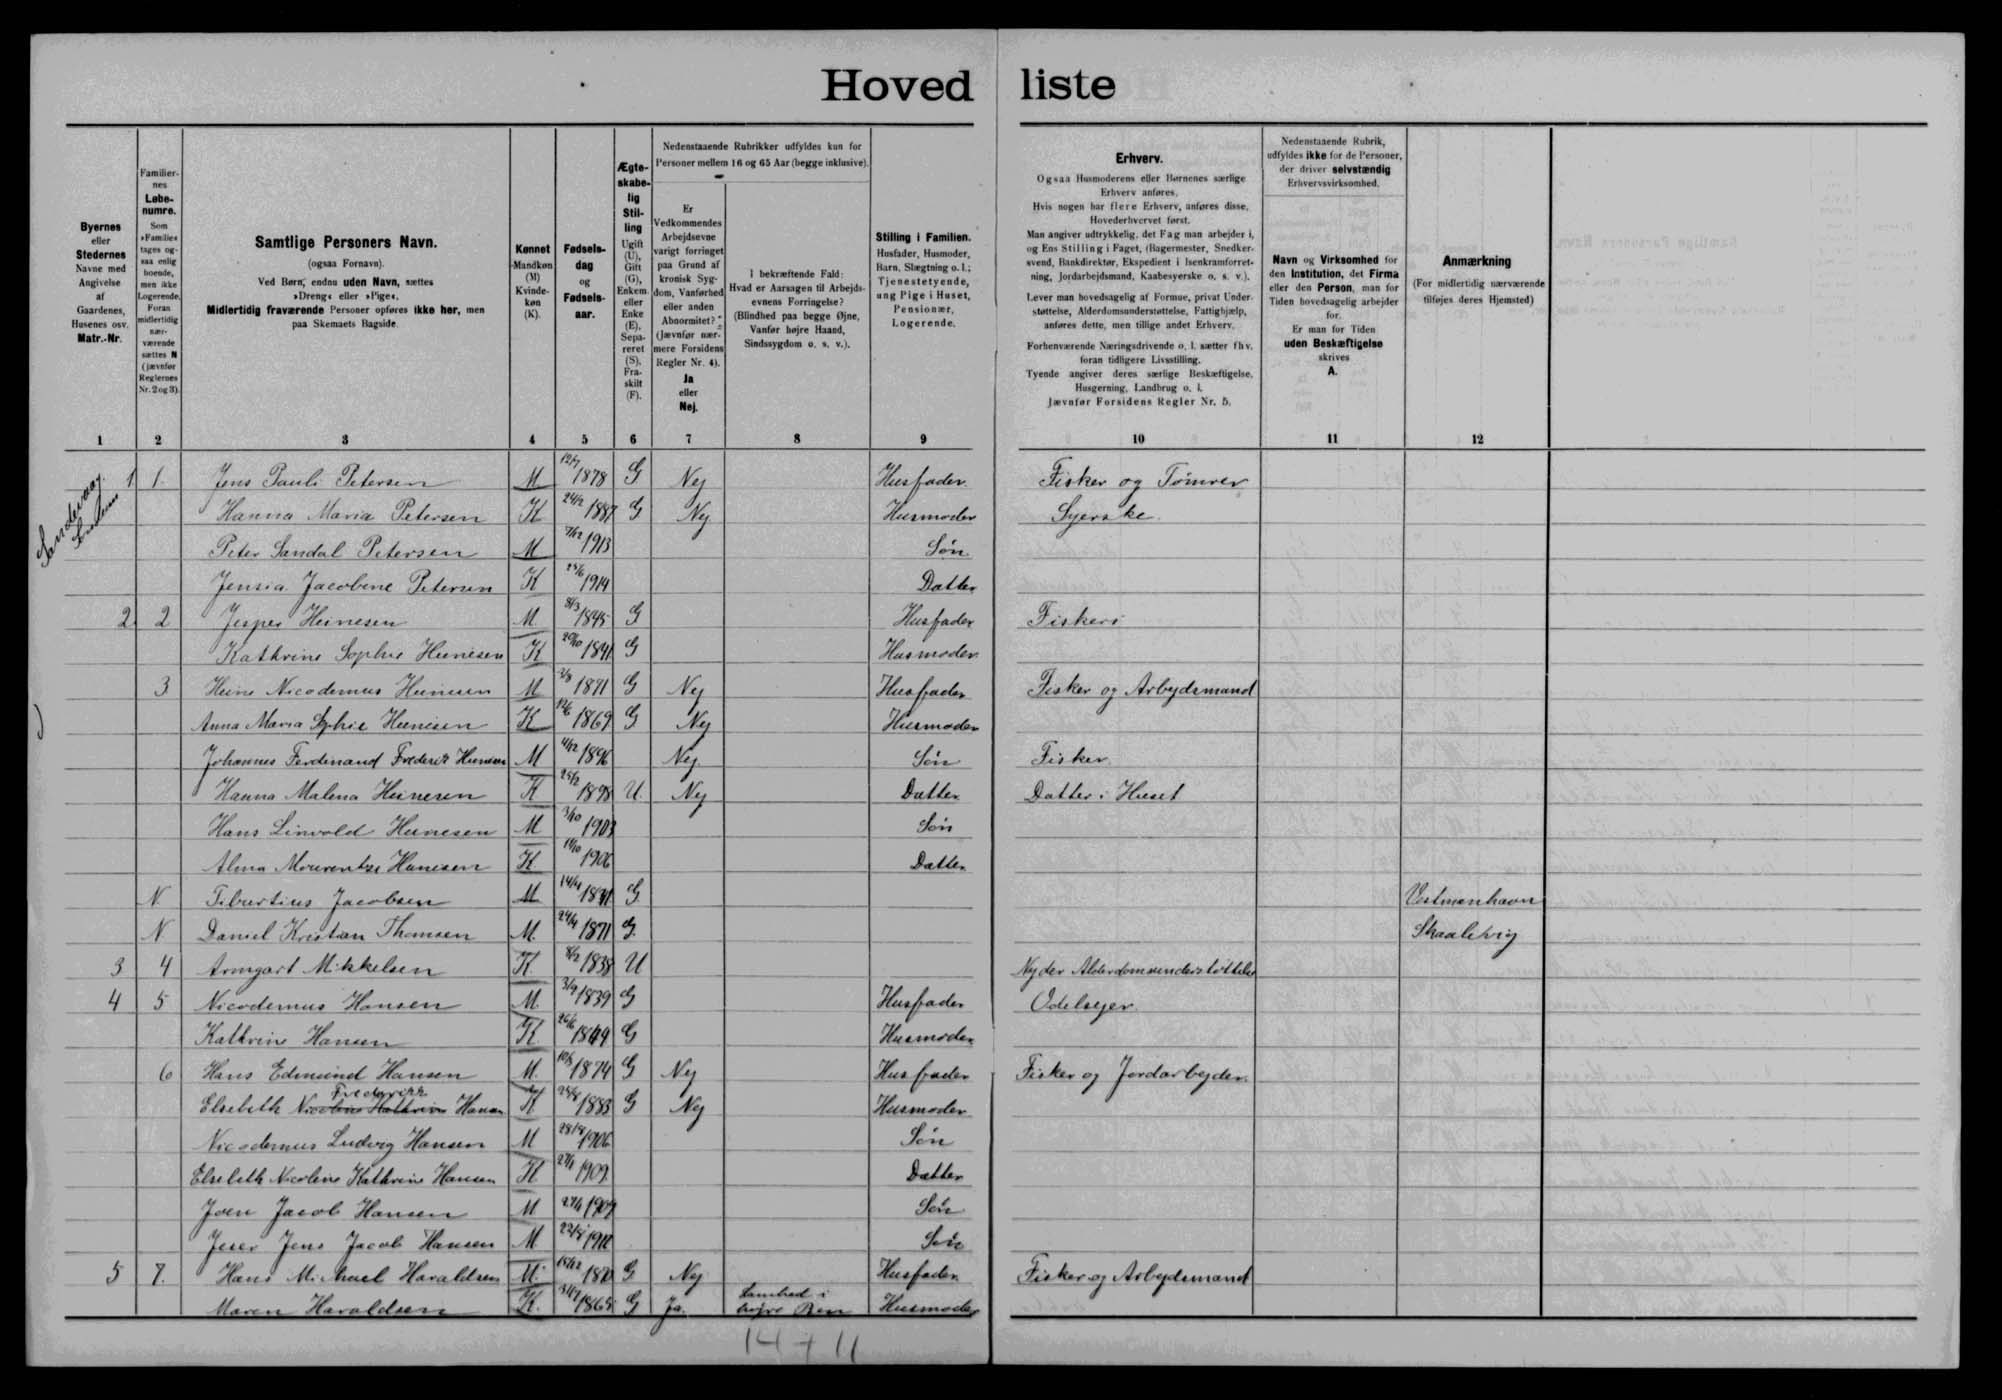 Hoved liste
Byernes
eller
Stedernes
Navne med
Angivelse
af
Gaardenes,
Husenes osv.
Matr.-Nr.
Familier-
nes
Løbe-
numre.
Som
»Familie«
tages og-
saa enlig
boende,
men ikke
Logerende.
Foran
midlertidig
nær-
værende
sættes N
(jævnfør
Reglernes
Nr. 2 og 3).
Samtlige Personers Navn.
(ogsaa Fornavn).
Ved Børn, endnu uden Navn, sættes
»Dreng« eller »Pige«.
Midlertidig fraværende Personer opføres ikke her, men
paa Skemaets Bagside.
Kønnet
Mandkøn
(M)
Kvinde-
køn
(K).
Fødsels-
dag
og
Fødsels-
aar.
Ægte-
skabe-
lig
Stil-
ling
Ugift
(U),
Gift
(G),
Enkem.
eller
Enke
(E),
Sepa-
reret
(S),
Fra-
skilt
(F).
Nedenstaaende Rubrikker udfyldes kun for
Personer mellem 16 og 65 Aar (begge inklusive).
Er
Vedkommendes
Arbejdsevne
varigt forringet
paa Grund af
kronisk Syg-
dom, Vanførhed
eller anden
Abnormitet?
(Jævnfør nær-
mere Forsidens
Regler Nr. 4).
Ja
eller
Nej.
I bekræftende Fald:
Hvad er Aarsagen til Arbejds-
evnens Forringelse?
(Blindhed paa begge Øjne,
Vanfør højre Haand,
Sindssygdom o. s. v.).
Stilling i Familien.
Husfader, Husmoder,
Barn, Slægtning o. l.;
Tjenestetyende,
ung Pige i Huset,
Pensionær,
Logerende.
Erhverv.
Ogsaa Husmoderens eller Børnenes særlige
Erhverv anføres.
Hvis nogen har flere Erhverv, anføres disse,
Hovederhvervet først.
Man angiver udtrykkelig, det Fag man arbejder i,
og Ens Stilling i Faget, (Bagermester, Snedker-
svend, Bankdirektør, Ekspedient i Isenkramforret-
ning, Jordarbejdsmand, Kaabesyerske o. s. v.).
Lever man hovedsagelig af Formue, privat Under-
støttelse, Alderdomsunderstøttelse, Fattighjælp,
anføres dette, men tillige andet Erhverv.
Forhenværende Næringsdrivende o. l. sætter fhv.
foran tidligere Livsstilling.
Tyende angiver deres særlige Beskæftigelse,
Husgerning, Landbrug o. l.
Jævnfør Forsidens Regler Nr. 5.
Nedenstaaende Rubrik,
udfyldes ikke for de Personer,
der driver selvstændig
Erhvervsvirksomhed.
Navn og Virksomhed for
den Institution, det Firma
eller den Person, man for
Tiden hovedsagelig arbejder
for.
Er man for Tiden
uden Beskæftigelse
skrives
A.
Anmærkning
(For midlertidig nærværende
tilføjes deres Hjemsted)
1 2 3 4 5 6 7 8 9 10 11 12
Sandevaag
1 1. Jens Pauli Petersen M 12/7 1878 G Nej Husfader Fisker og Tømrer
Hanna Maria Petersen K 24/12 1887 G Nej Husmoder Syerske.
Peter Sandal Petersen M 7/12 1913 Søn
Jensia Jacobine Petersen K 25/6 1914 Datter
2 2 Jesper Heinesen M 8/3 1845 G Husfader Fiskeri
Kathrine Sophie Heinesen K 20/10 1841 G Husmoder
3 Heine Nicodemus Heinesen M 2/8 1871 G Nej Husfader Fisker og Arbejdsmand
Anna Maria Sophie Heinesen K 12/6 1869 G Nej Husmoder
Johannes Ferdinand Frederik Heinesen M 4/12 1896 Nej Søn Fisker
Hanna Malena Heinesen K 25/2 1898 U. Nej Datter Datter i Huset
Hans Linvold Heinesen M 3/10 1903 Søn
Alma Mourentze Heinesen K. 14/10 1906 Datter
N Tiburtius Jacobsen M 14/4 1841 G. Vestmanhavn
N Daniel Kristian Thomsen M. 24/4 1871 G. Skaalevig
3 4 Armgart Mikkelsen K. 8/2 1838 U Nyder Alderdomsunderstøttelse
4 5 Nicodemus Hansen M. 3/9 1839 G Husfader Odelsejer.
Kathrine Hansen K. 26/6 1849 G Husmoder
6 Hans Edmund Hansen M. 10/3 1874 G Nej Husfader Fisker og Jordarbejder.
Frederikke
Elsebeth Nicoline Kathrine Hansen K 25/8 1883 G Nej Husmoder
Nicodemus Ludvig Hansen M 28/8 1906 Søn
Elsebeth Nicoline Kathrine Hansen K 27/1 1909. Datter
Joen Jacob Hansen M 27/1 1909 Søn
Jens Jacob Hansen M. Søn
5 7. Hans Michael Haraldsen M. 15/12 G Nej Husfader Fisker og Arbejdsmand
Maren Haraldsen K. 1865 G Ja. Lamhed i højre Ben Husmoder
14 + 11